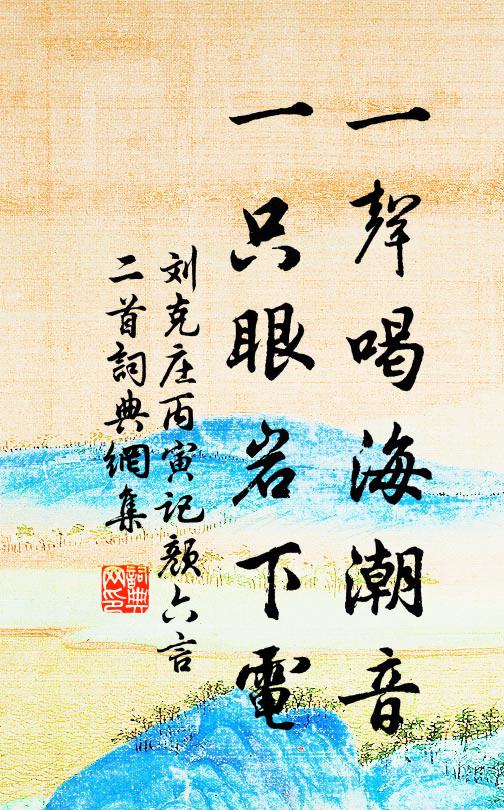 一聲喝海潮音
一只眼岩下電
刘克庄丙寅记颜六言
二首詞典網集
詞典
网印